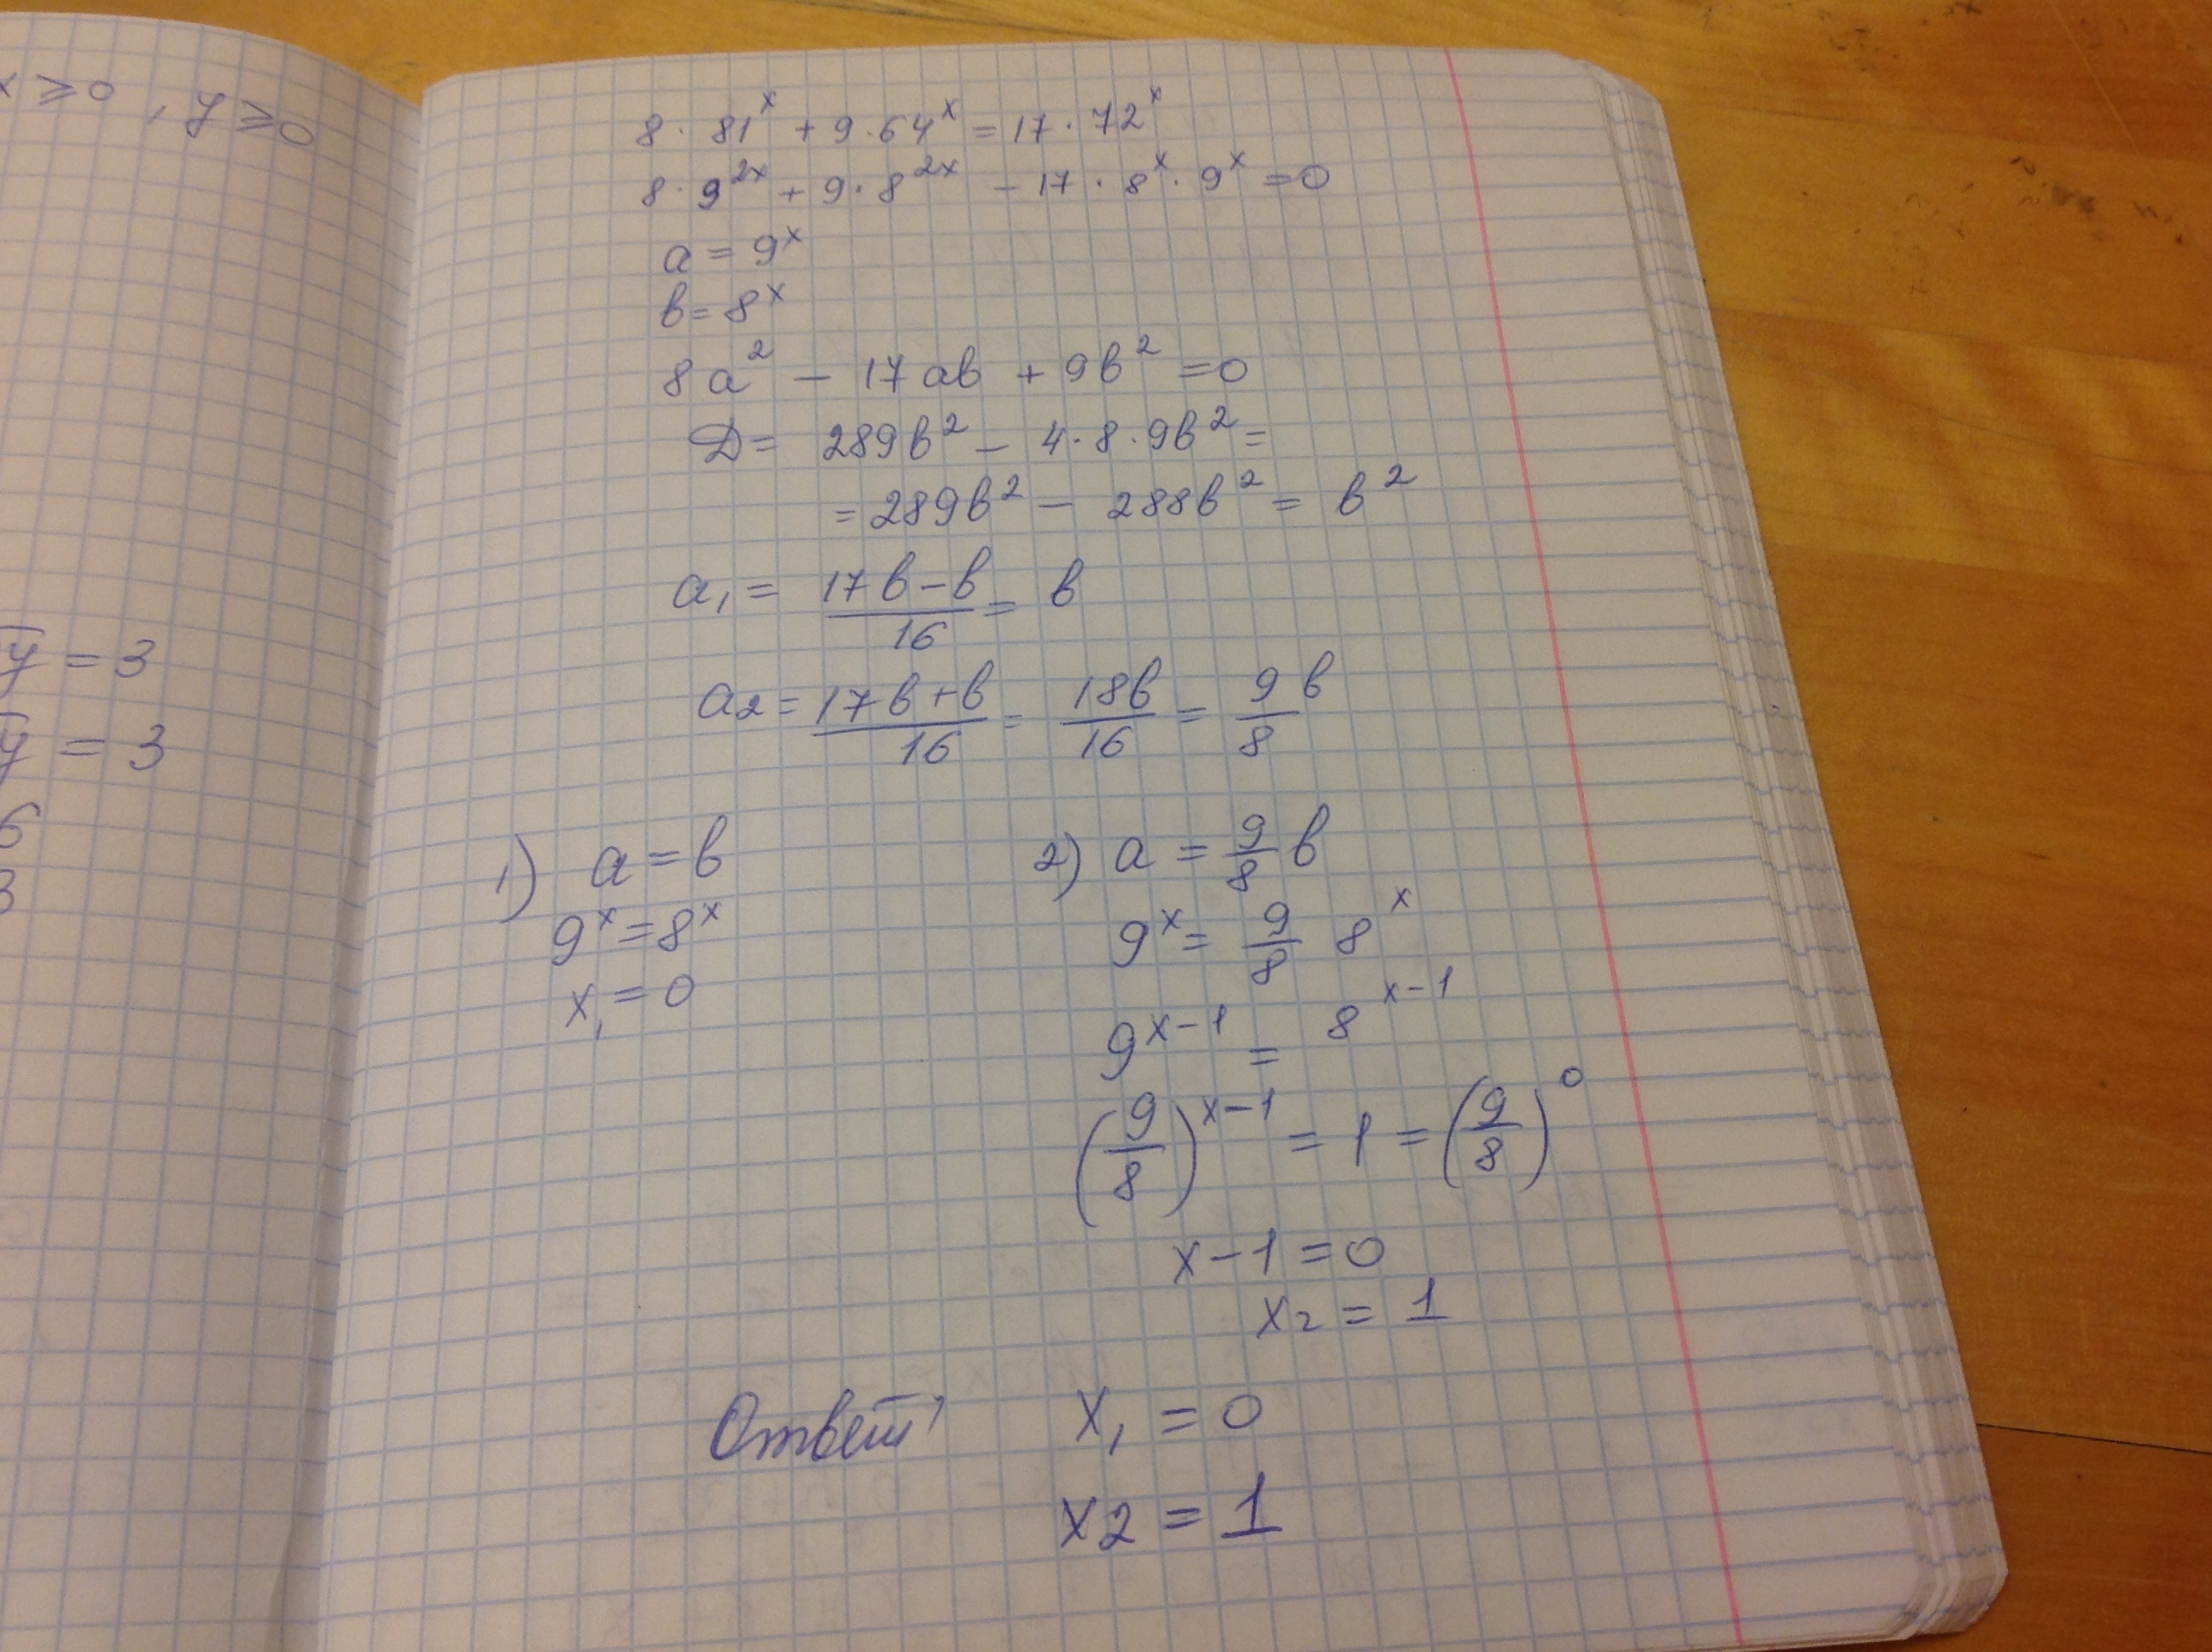 x ≥ 0, y ≥ 0
y = 3
y = 3
6
3
8 · 81^x + 9 · 64^x = 17 · 72^x
8 · 9^2x + 9 · 8^2x − 17 · 8^x · 9^x = 0
a = 9^x
b = 8^x
8a^2 − 17ab + 9b^2 = 0
D = 289b^2 − 4 · 8 · 9b^2 =
= 289b^2 − 288b^2 = b^2
a₁ = (17b − b)/16 = b
a₂ = (17b + b)/16 = 18b/16 = 9b/8
1) a = b
9^x = 8^x
x₁ = 0
2) a = 9/8 b
9^x = 9/8 8^x
9^(x−1) = 8^(x−1)
(9/8)^(x−1) = 1 = (9/8)^0
x − 1 = 0
x₂ = 1
Ответ: x₁ = 0
x2 = 1